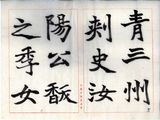 青三州
刺史汝
陽公翫
之季女